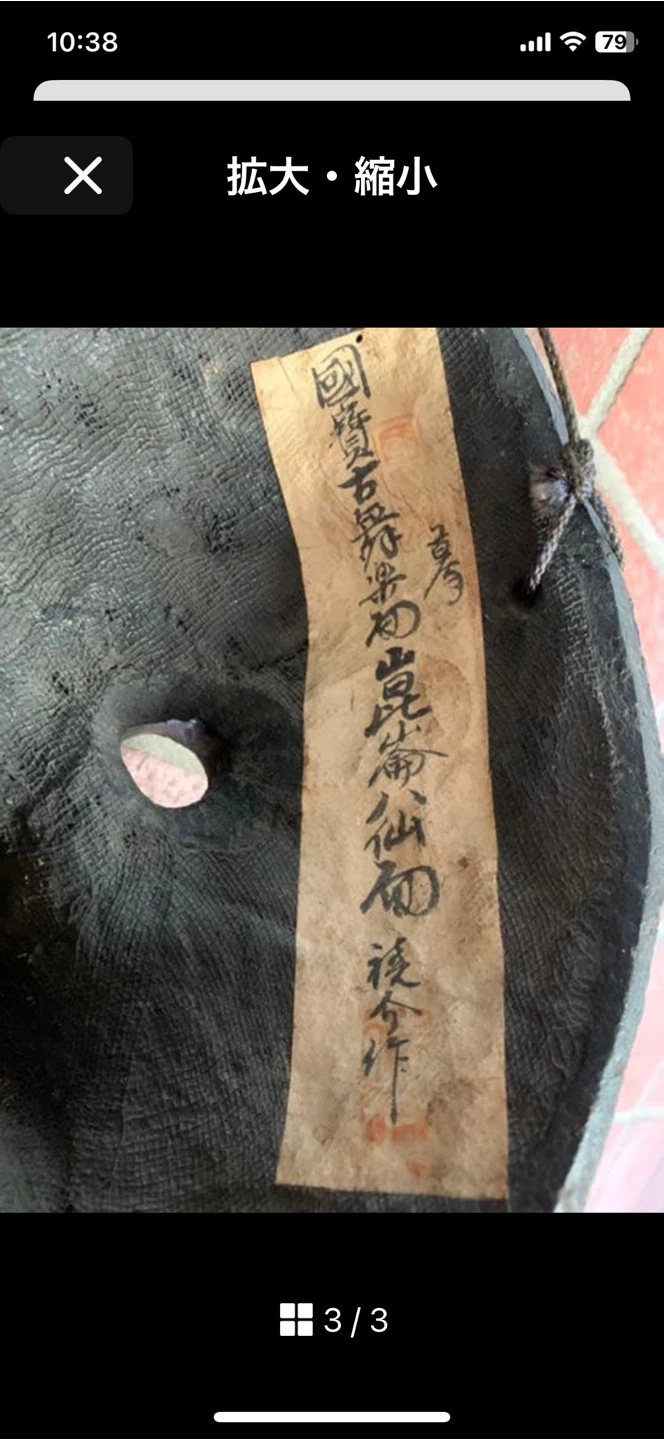 10:38
79
拡大・縮小
國寶古舞楽面
崑崙八仙面
作
3/3